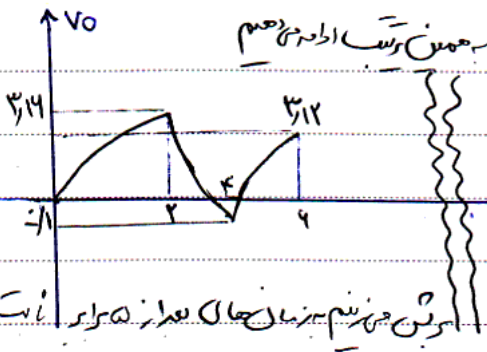 Vo
به همین ترتیب ادامه می دهیم
۳,۱۶
۳,۱۲
۲
۴
۶
-۰/۱
برش می زنیم به زمان های بعد از ۵ برابر ثابت